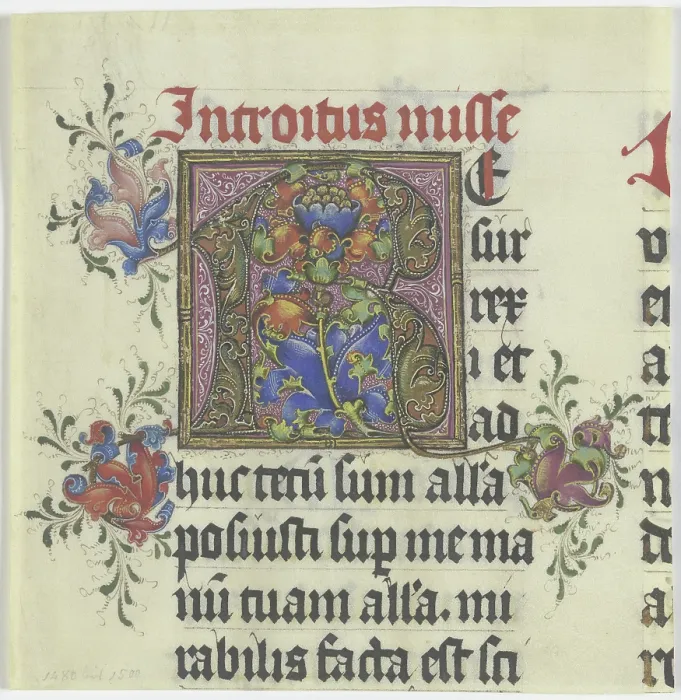 Introitus misse
RE
sur
rex
i et
ad
huc tecū sum all'a
posuisti sup̱ me ma
nū tuam all'a. mi
rabilis facta est sci
1480 bis 1500